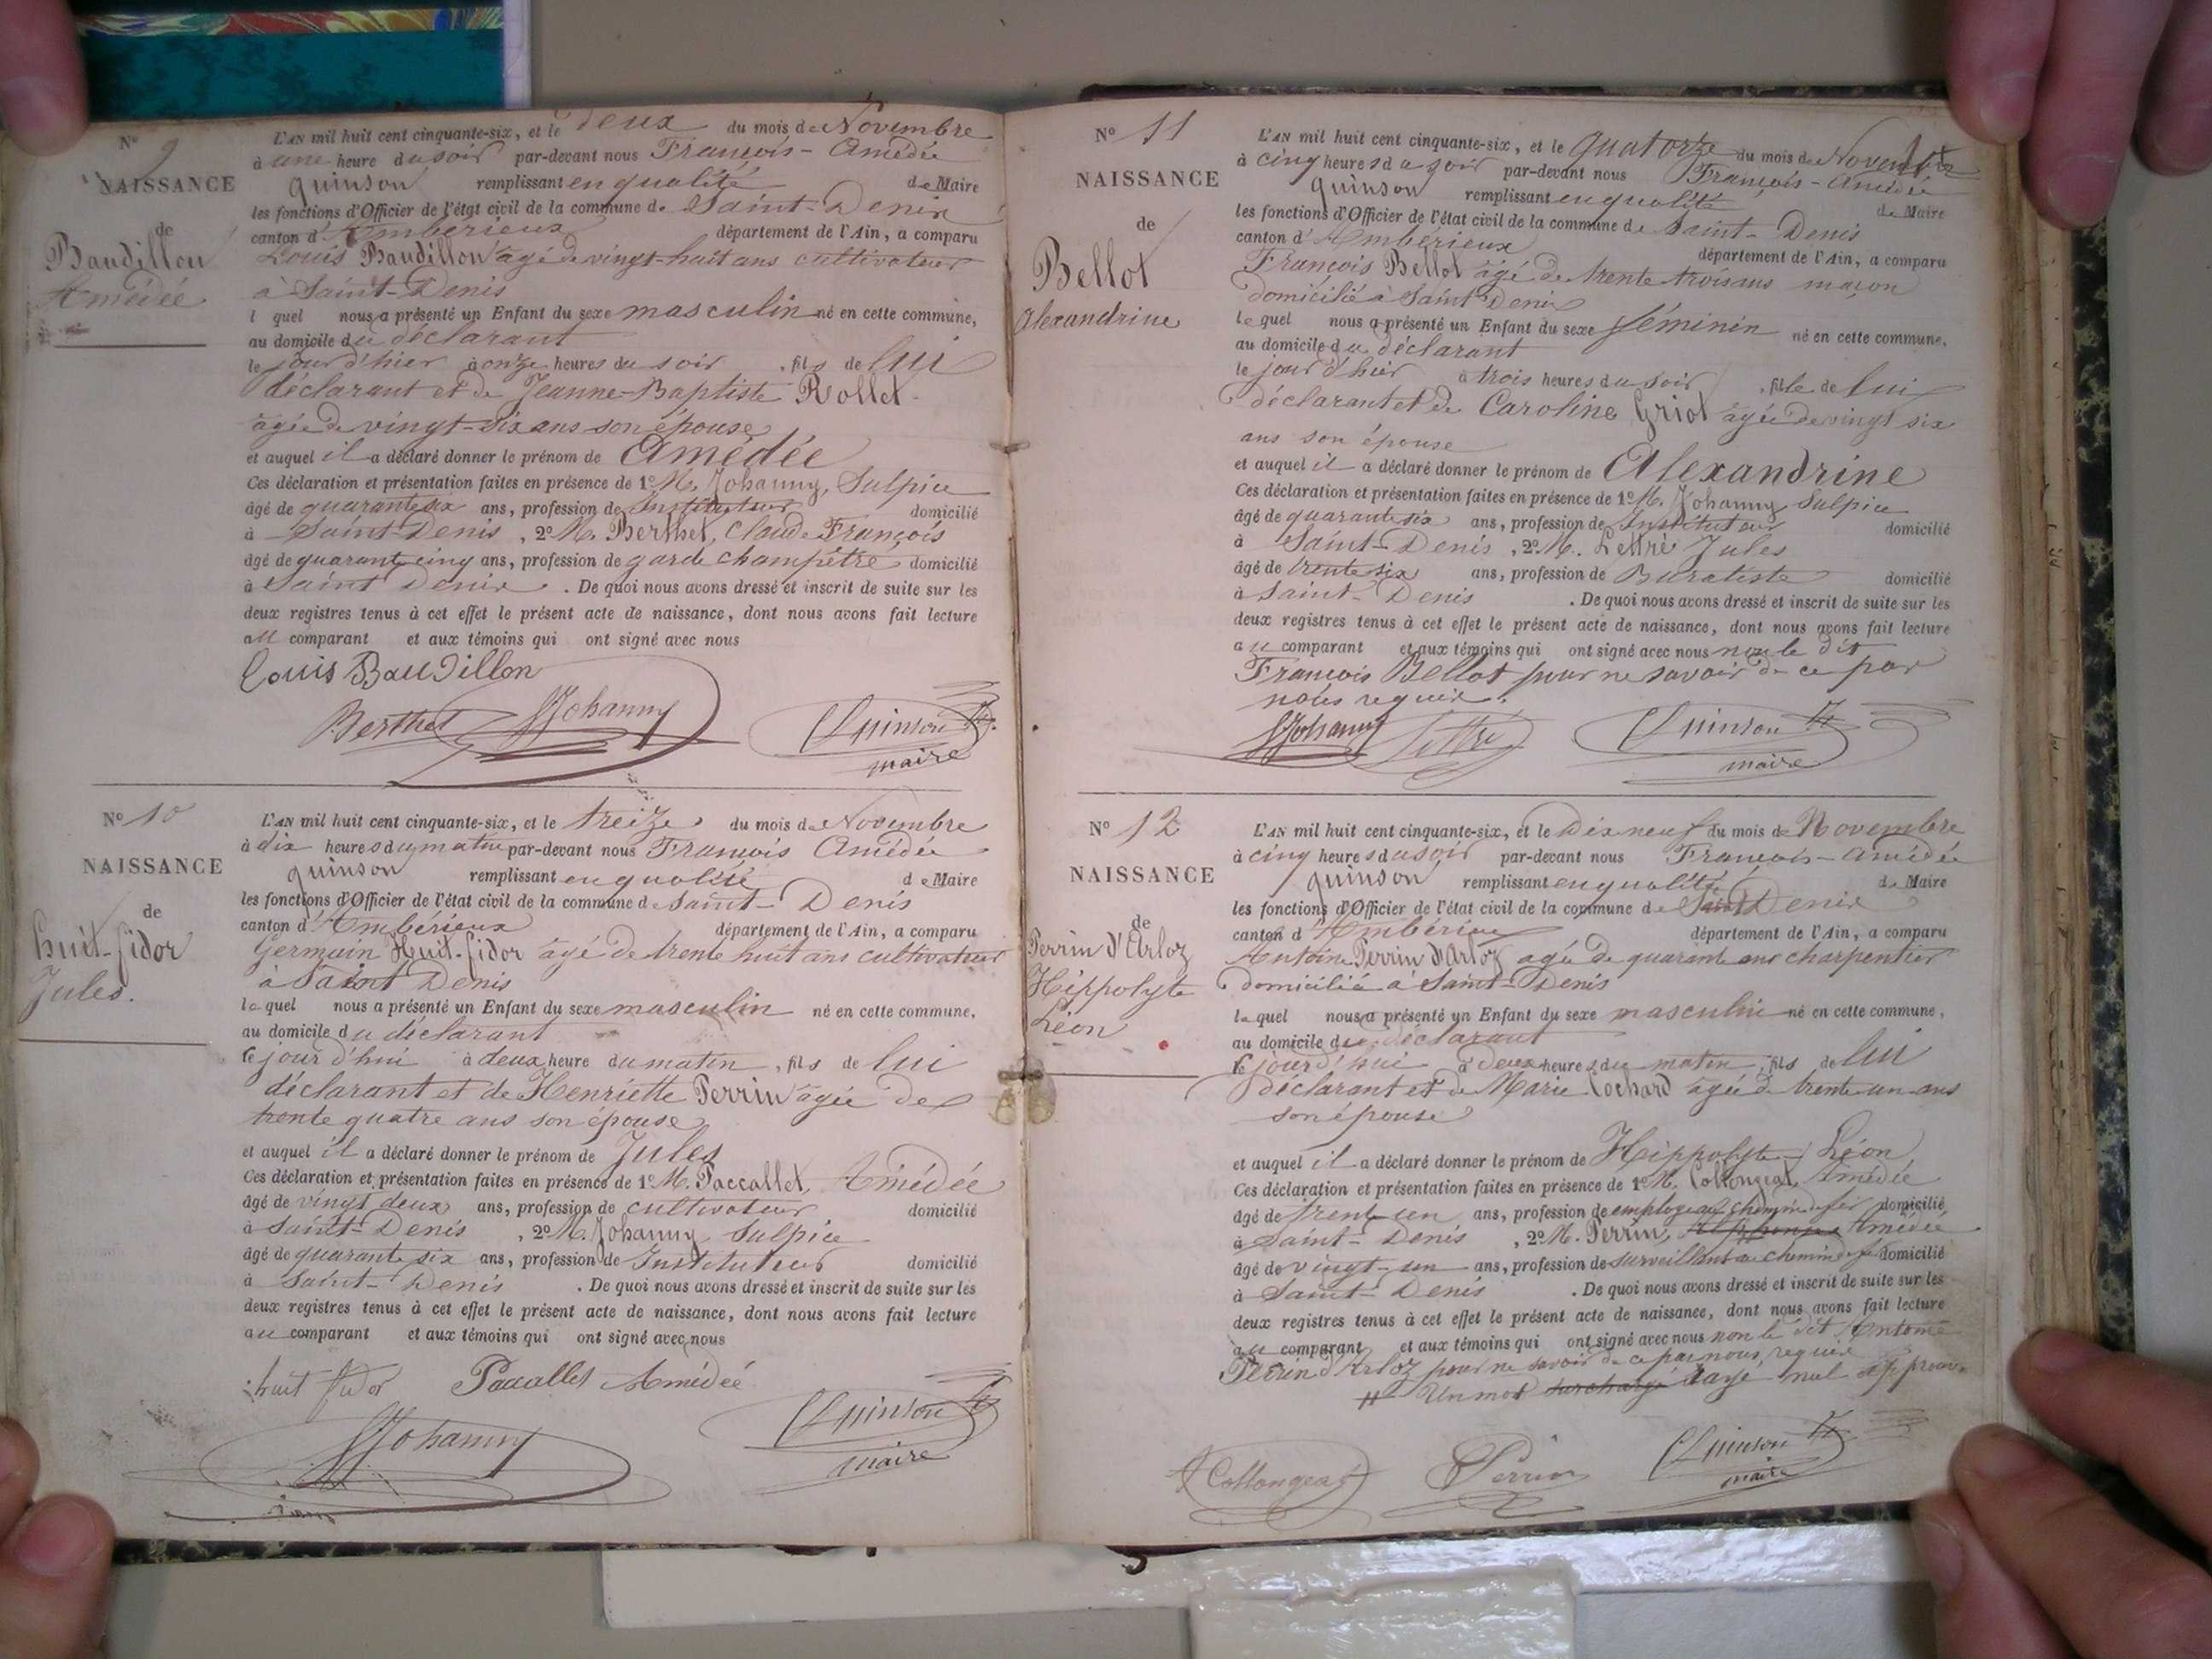 N° 9
NAISSANCE
de
Baudillon
Amédée
L'AN mil huit cent cinquante-six, et le deux du mois de Novembre
à une heure du soir par-devant nous François-Amédée
quinson remplissant en qualité de Maire
les fonctions d'Officier de l'état civil de la commune de Saint-Denis
canton d'Ambérieux département de l'Ain, a comparu
Louis Baudillon âgé de vingt-huit ans cultivateur
à Saint-Denis
l quel nous a présenté un Enfant du sexe masculin né en cette commune,
au domicile du déclarant
le jour d'hier à onze heures du soir, fils de lui
déclarant et de Jeanne-Baptiste Rollet
âgée de vingt-six ans son épouse
et auquel il a déclaré donner le prénom de Amédée
Ces déclaration et présentation faites en présence de 1° M. Johanny, Sulpice
âgé de quarante six ans, profession de Instituteur domicilié
à Saint-Denis, 2° M. Berthet, Claude François
âgé de quarante cinq ans, profession de garde champêtre domicilié
à Saint Denis. De quoi nous avons dressé et inscrit de suite sur les
deux registres tenus à cet effet le présent acte de naissance, dont nous avons fait lecture
au comparant et aux témoins qui ont signé avec nous
Louis Baudillon
Berthet SJohanny Quinson
maire
N° 10
NAISSANCE
de
huit-fidor
Jules.
L'AN mil huit cent cinquante-six, et le treize du mois de Novembre
à dix heures du matin par-devant nous François Amédée
quinson remplissant en qualité de Maire
les fonctions d'Officier de l'état civil de la commune de Saint-Denis
canton d'Ambérieux département de l'Ain, a comparu
Germain Huit-fidor âgé de trente huit ans cultivateur
à Saint Denis
lequel nous a présenté un Enfant du sexe masculin né en cette commune,
au domicile du déclarant
le jour d'hui à deux heure du matin, fils de lui
déclarant et de Henriette Perrin âgée de
trente quatre ans son épouse
et auquel il a déclaré donner le prénom de Jules
Ces déclaration et présentation faites en présence de 1° M. Paccallet, Amédée
âgé de vingt deux ans, profession de cultivateur domicilié
à Saint-Denis, 2° M. Johanny Sulpice
âgé de quarante six ans, profession de Instituteur domicilié
à Saint-Denis. De quoi nous avons dressé et inscrit de suite sur les
deux registres tenus à cet effet le présent acte de naissance, dont nous avons fait lecture
au comparant et aux témoins qui ont signé avec nous
huit fidor Paccallet Amédée
SJohanny Quinson
maire
N° 11
NAISSANCE
de
Bellot
Alexandrine
L'AN mil huit cent cinquante-six, et le quatorze du mois de Novembre
à cinq heures du soir par-devant nous François-Amédée
quinson remplissant en qualité de Maire
les fonctions d'Officier de l'état civil de la commune de Saint-Denis
canton d'Ambérieux département de l'Ain, a comparu
François Bellot âgé de trente trois ans maçon
domicilié à Saint Denis
lequel nous a présenté un Enfant du sexe féminin né en cette commune,
au domicile du déclarant
le jour d'hier à trois heures du soir, fille de lui
déclarant et de Caroline Griot âgée de vingt six
ans son épouse
et auquel il a déclaré donner le prénom de Alexandrine
Ces déclaration et présentation faites en présence de 1° M. Johanny Sulpice
âgé de quarante six ans, profession de Instituteur domicilié
à Saint-Denis, 2° M. Lettré Jules
âgé de trente six ans, profession de Buraliste domicilié
à Saint-Denis. De quoi nous avons dressé et inscrit de suite sur les
deux registres tenus à cet effet le présent acte de naissance, dont nous avons fait lecture
au comparant et aux témoins qui ont signé avec nous non le dit
François Bellot pour ne savoir de ce par
nous requis.
SJohanny Lettré Quinson
maire
N° 12
NAISSANCE
de
Perrin d'Arloz
Hippolyte
Léon
L'AN mil huit cent cinquante-six, et le Dix neuf du mois de Novembre
à cinq heures du soir par-devant nous François-Amédée
quinson remplissant en qualité de Maire
les fonctions d'Officier de l'état civil de la commune de Saint Denis
canton d'Ambérieux département de l'Ain, a comparu
Antoine Perrin d'Arloz âgé de quarante ans charpentier
domicilié à Saint-Denis
lequel nous a présenté un Enfant du sexe masculin né en cette commune,
au domicile du déclarant
le jourd'hui à deux heures du matin, fils de lui
déclarant et de Marie Cochard âgée de trente-un ans
son épouse
et auquel il a déclaré donner le prénom de Hippolyte-Léon
Ces déclaration et présentation faites en présence de 1° M. Collongeat, Amédée
âgé de trente-un ans, profession de employé au chemin de fer domicilié
à Saint-Denis, 2° M. Perrin, Alphonse Amédée
âgé de vingt-un ans, profession de surveillant au chemin de fer domicilié
à Saint-Denis. De quoi nous avons dressé et inscrit de suite sur les
deux registres tenus à cet effet le présent acte de naissance, dont nous avons fait lecture
au comparant et aux témoins qui ont signé avec nous non le dit Antoine
Perrin d'Arloz pour ne savoir de ce par nous requis
Un mot surchargé rayé nul approuvé
A Collongeat Perrin Quinson
maire